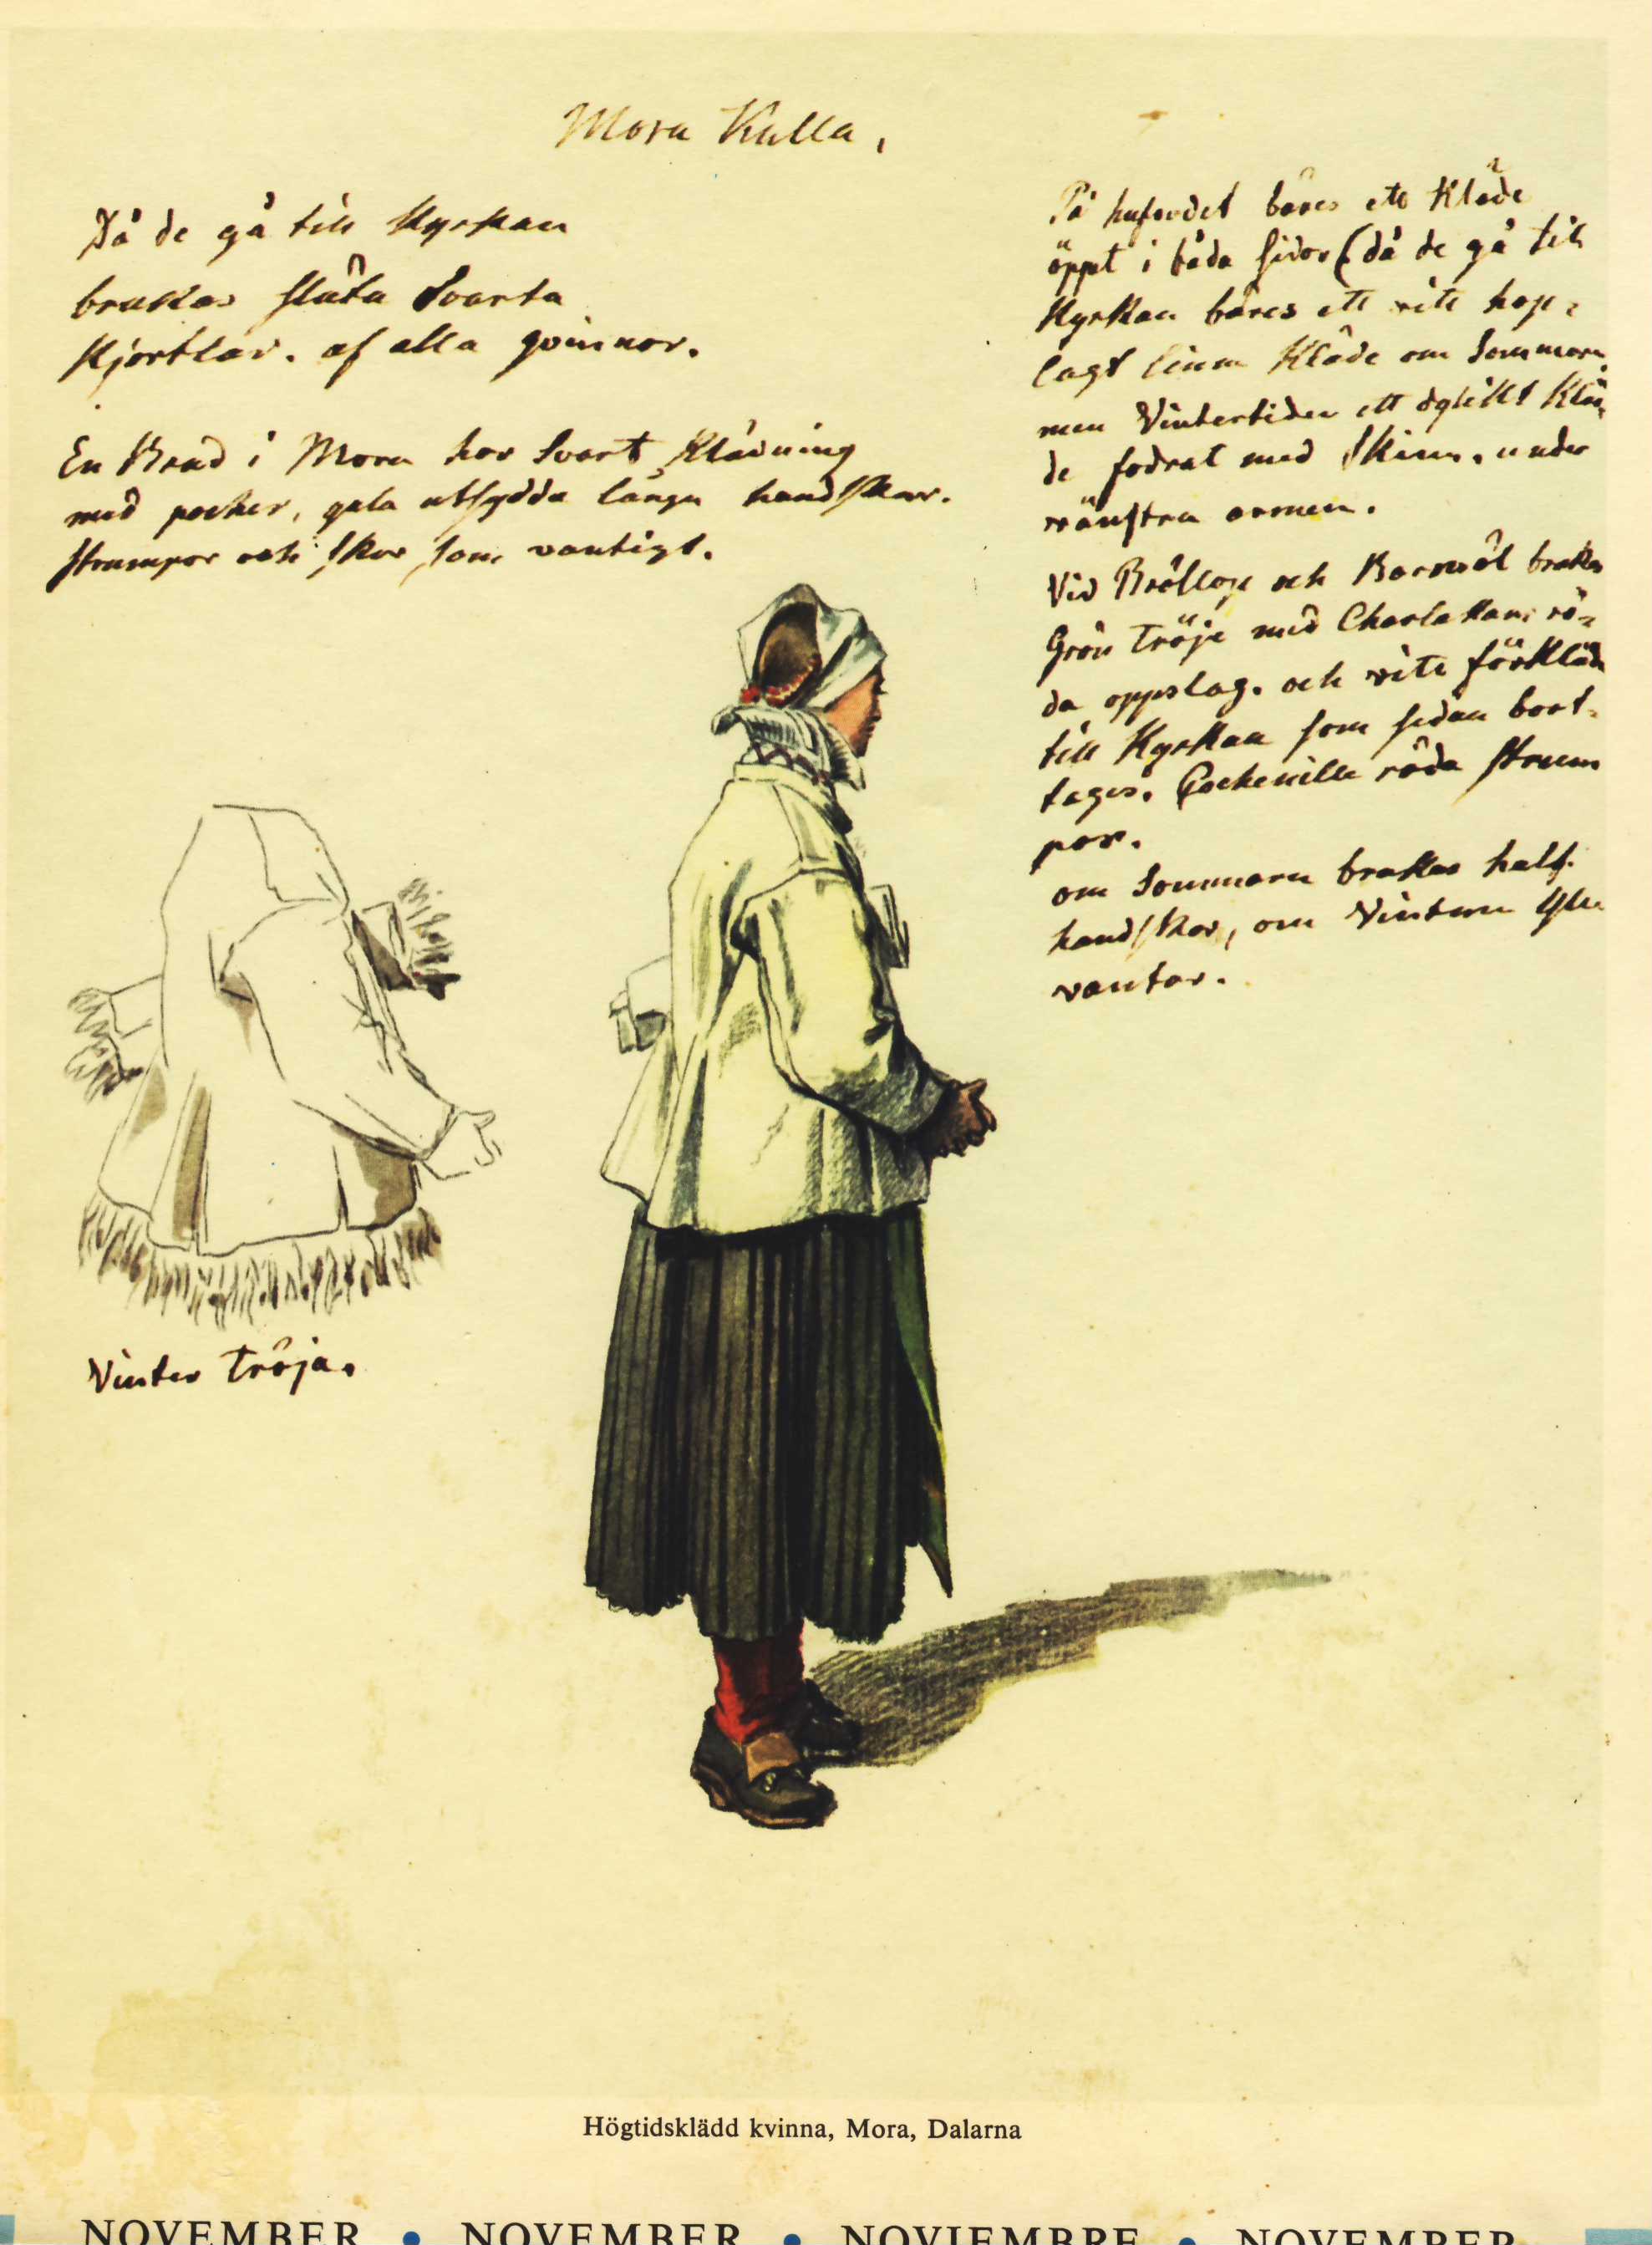 Mora Kulla,
Då de gå till Kyrkan
brukas släta Svarta
Kjortlar. af alla qvinnor.
En Brud i Mora har Svart Klädning
med pocher, gula utsydda långa handskar.
strumpor och skor som vanligt.
På hufvudet bäres ett Kläde
öppet i båda sidor (då de gå till
Kyrkan bäres ett vitt hop-
lagt linne Kläde om Sommarn
men Vintertiden ett dylikt Klä-
de fodrat med Skinn. under
vänstra armen.
Vid Bröllop och Barnsöl brukas
Grön Tröje med Charlakans rö-
da oppslag. och vitt förkläde
till Kyrkan som sedan bort-
tages. Cochenille röda strum
por.
om Sommarn brukas half-
handskar, om Vintern Ylle
vantar.
Vinter Tröja.
Högtidsklädd kvinna, Mora, Dalarna
NOVEMBER • NOVEMBER • NOVIEMBRE • NOVEMBER